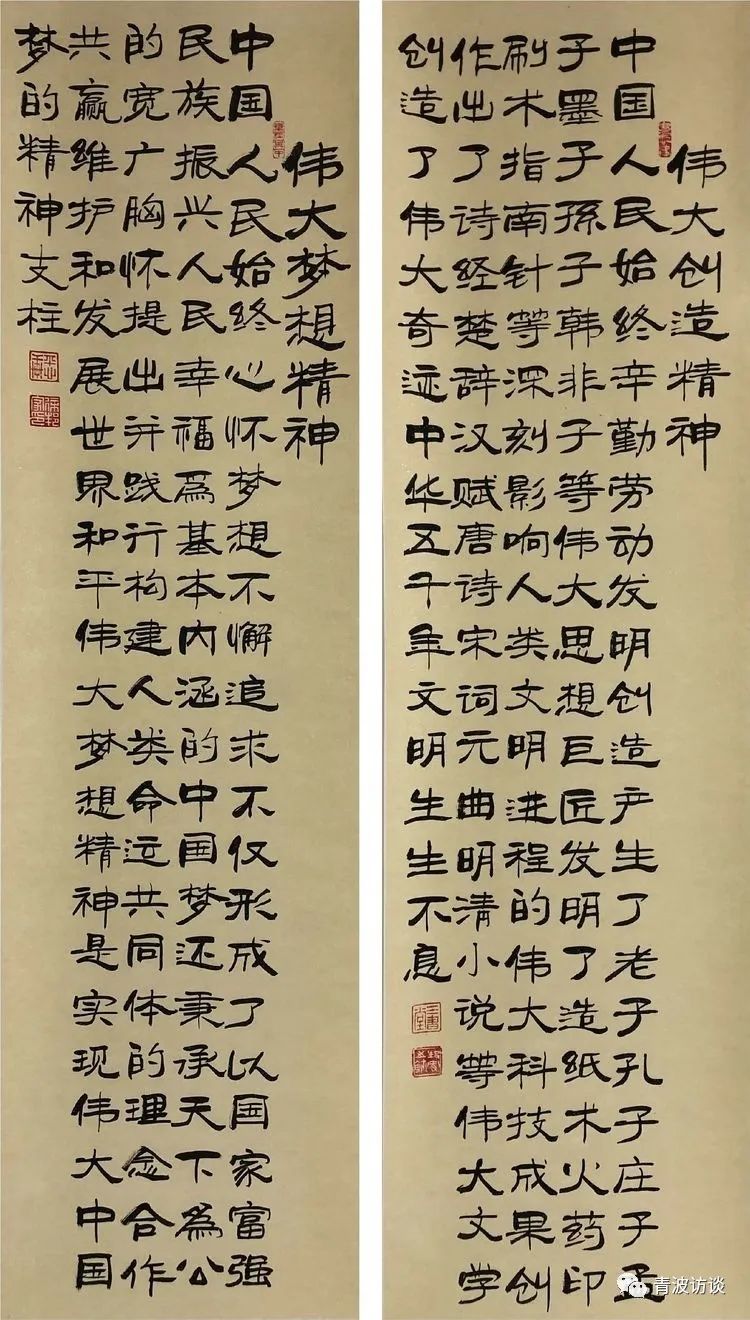 伟大创造精神
中国人民始终辛勤劳动发明创造产生了老子孔子庄子孟
子墨子孫子韩非子等伟大思想巨匠发明了造纸术火药印
刷术指南针等深刻影响人类文明进程的伟大科技成果创
作出了诗经楚辞汉赋唐诗宋词元曲明清小说等伟大文学
创造了伟大奇迹中华五千年文明生生不息
伟大梦想精神
中国人民始终心怀梦想不懈追求不仅形成了以国家富强
民族振兴人民幸福為基本内涵的中国梦还秉承天下為公
的宽广胸怀提出并践行构建人类命运共同体的理念合作
共赢维护和发展世界和平伟大梦想精神是实现伟大中国
梦的精神支柱
青波访谈